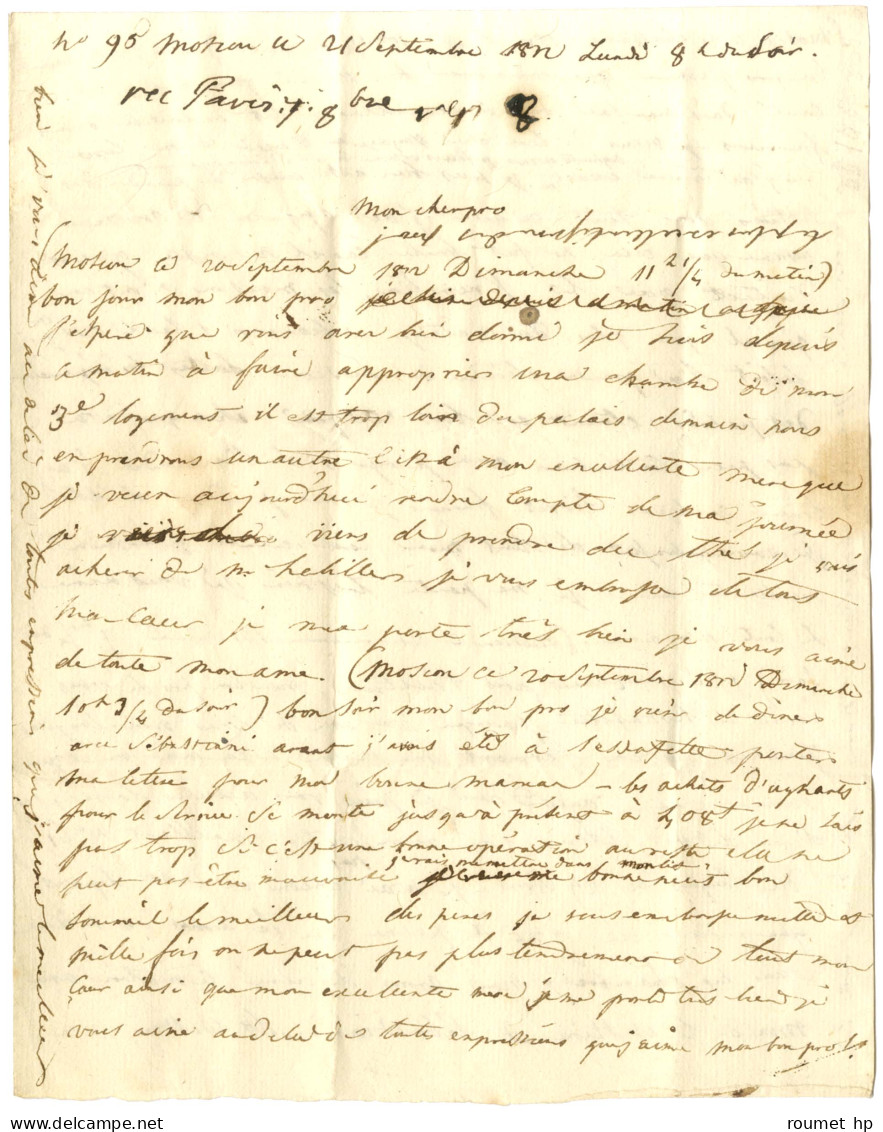 no 95 moscou ce 21 Septembre 1812 Lundi 8 h du Soir.
rec Paris. 8 bre
mon cher pro
(moscou ce 20 Septembre 1812 Dimanche 11 du matin)
bon jour mon bon pro
j'espere que vous avez bien dormé je suis depuis
ce matin à faire approprier ma chambre de mon
3e logement il est trop loin du palais demain nous
en prendrons un autre c'est à mon excellente mere que
je veux aujourd'hui rendre compte de ma journée
je viens de prendre du thé, je vais
achever de m habiller je vous embrasse de tout
mon Coeur je me porte très bien je vous aime
de toute mon ame. (moscou ce 20 Septembre 1812 Dimanche
10h 3/4 du soir) bon soir mon bon pro je viens de diner
avec Sébastiani avant j'avois été à l'estaffette porter
ma lettre pour ma bonne maman - les achats d'
pour le se monte jusqu'à présent à je ne sais
pas trop si c'est une bonne opération au reste elle ne
peut pas être mauvaise je vais me mettre dans mon lit bonne nuit bon
sommeil le meilleur des peres je vous embrasse mille et
mille fois on ne peut pas plus tendrement de tout mon
Coeur ainsi que mon excellente mere je me porte très bien je
vous aime au dela de toutes expressions que j'aime mon bon pro
bien je vous aime au dela de toutes expressions que j'aime le meilleur
roumet hp